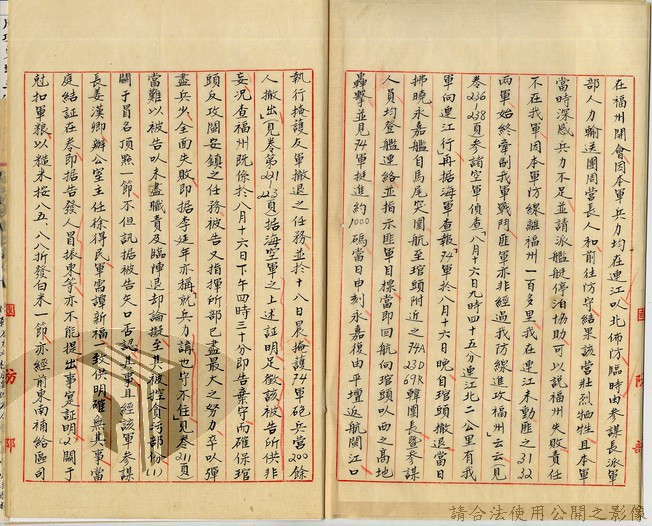 在福州開會因本軍兵力均在連江以北佈防臨時由參謀長派軍
部人力輸送團周營長人和前往防守結果該營壯烈犧牲且本軍
當時深感兵力不足並請派艦艇停泊協助可以說福州失敗責任
不在我軍因本軍防線離福州一百多里我在連江未動匪之31 32
兩軍始終牽制我軍戰鬥匪軍亦非經過我防線進攻福州」云云見
卷236—238頁參諸空軍偵查「八月十六日九時四十五分連江北二公里有我
軍向連江行再據海軍查報74軍於八月十六日晚自琯頭撤退當日
拂曉永嘉艦自馬尾突圍航至琯頭附近之74A 23D 69R韓團長暨參謀
人員均登艦連絡並指示匪軍目標當即回航向琯頭以西之高地
轟擊並見74軍挺進約1000碼當日申刻永嘉復由平壇返航閩江口
執行掩護友軍撤退之任務並於十八日晨掩護74軍砲兵營200餘
人撤出」(見卷第221,223頁)據海空軍之上述証明足徵該被告所供非
妄況查福州既係於八月十六日下午四時三十分即告棄守而確保琯
頭反攻閩安鎮之任務被告又指揮所部已盡最大之努力卒以彈
盡兵少全面失敗即據李延年亦稱就兵力講也守不住(見卷211頁)
當難以被告以未盡職責及臨陣退却論擬至其被控貪污部份(1)
關于冒名頂照一節不但訊據被告矢口否認其事且經該軍參謀
長姜漢卿辦公室主任徐得民軍需譚新福一致供明確無其事當
庭結証在卷即据告發人冒振東等亦不能提出事實証明(2)關于
尅扣軍粮以糙米按八五、八八折發白米一節亦經前東南補給區司
國防部
國防部
請合法使用公開之影像